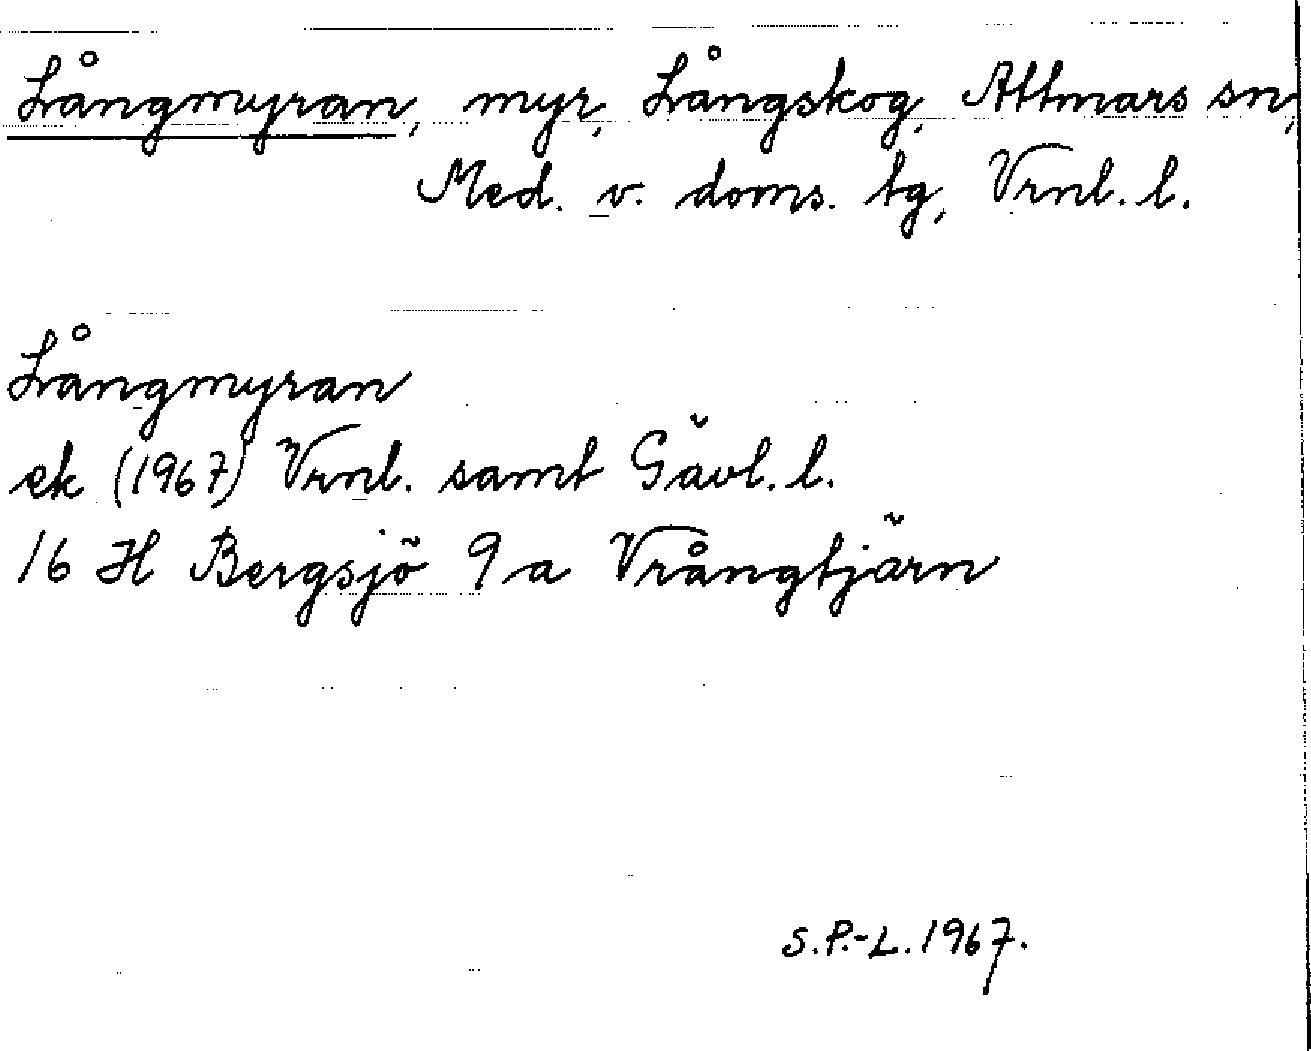 Långmyran, myr, Långskog, Attmars sn,
Med. v. doms. tg, Vrnl. l.
Långmyran
ek (1967) Vrnl. samt Gävl. l.
16 H Bergsjö 9 a Vrångtjärn
S.P.-L. 1967.